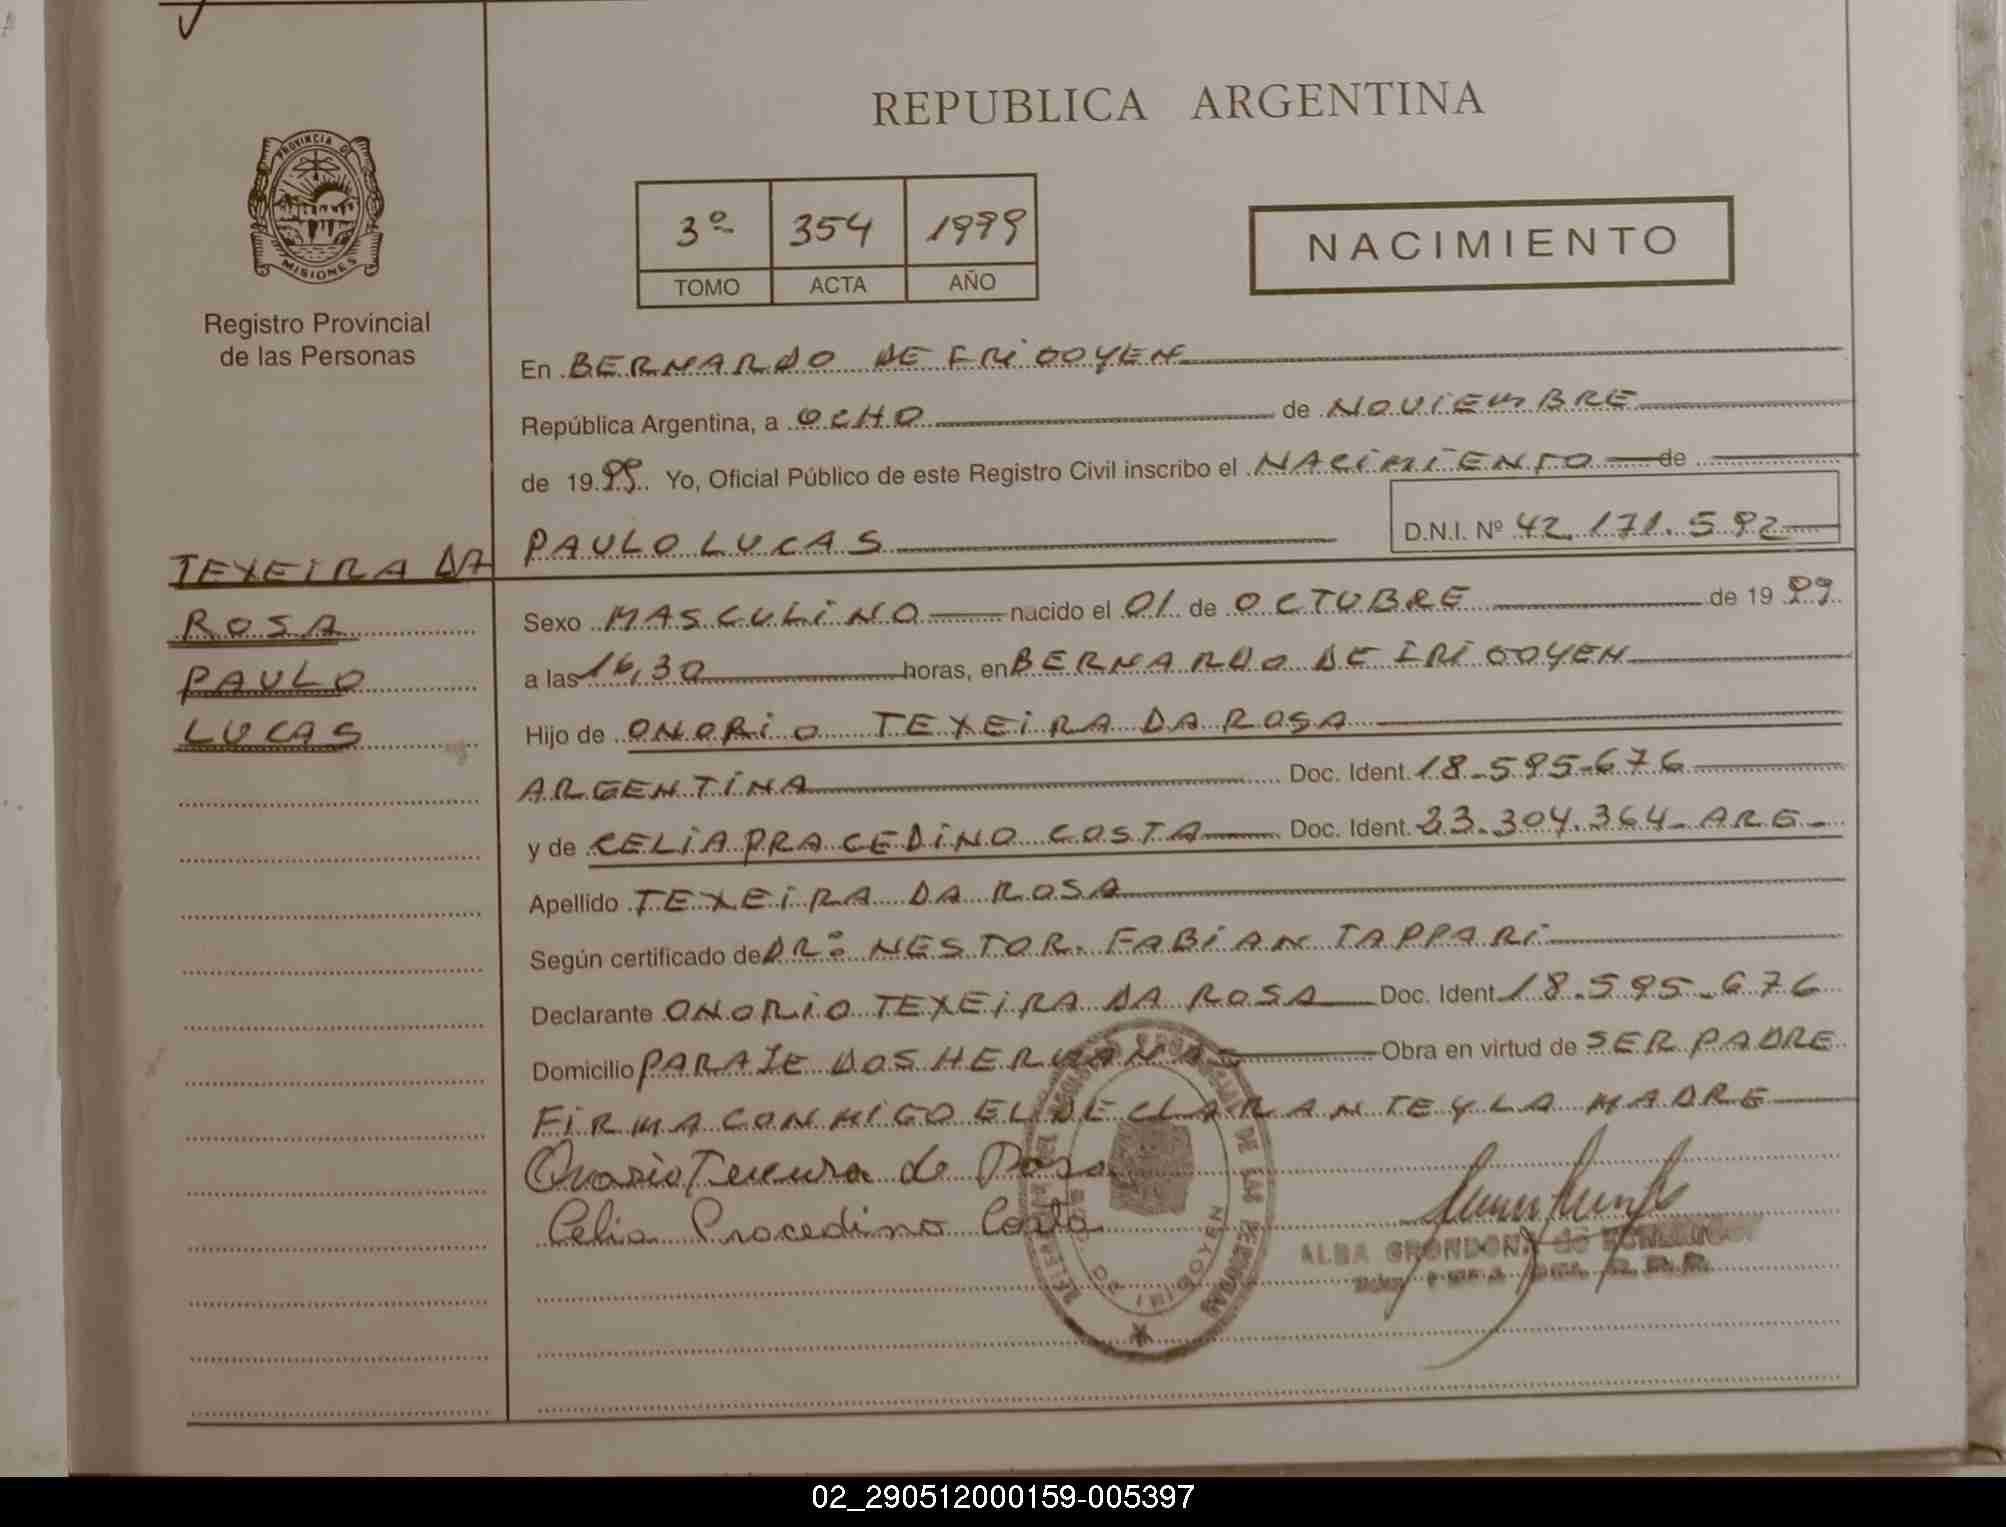 REPUBLICA ARGENTINA
PROVINCIA DE
MISIONES
Registro Provincial
de las Personas
3º 354 1999
TOMO ACTA AÑO
NACIMIENTO
En BERNARDO DE IRIGOYEN
República Argentina, a OCHO de NOVIEMBRE
de 1999. Yo, Oficial Público de este Registro Civil inscribo el NACIMIENTO de
PAULO LUCAS D.N.I. Nº 42.171.592
TEXEIRA DA
ROSA
PAULO
LUCAS
Sexo MASCULINO nacido el 01 de OCTUBRE de 1999
a las 16,30 horas, en BERNARDO DE IRIGOYEN
Hijo de ONORIO TEXEIRA DA ROSA
ARGENTINA Doc. Ident. 18-595-676
y de CELIA PRACEDINO COSTA Doc. Ident. 23.304.364-ARG-
Apellido TEXEIRA DA ROSA
Según certificado de DR: NESTOR FABIAN TAPPARI
Declarante ONORIO TEXEIRA DA ROSA Doc. Ident 18.595-676
Domicilio PARAJE DOS HERMANAS Obra en virtud de SER PADRE
FIRMA CONMIGO EL DECLARANTE Y LA MADRE
Celia Procedino Costa
DE LAS PERSONAS
IRIGOYEN
ALBA GRONDONA de
02_290512000159-005397